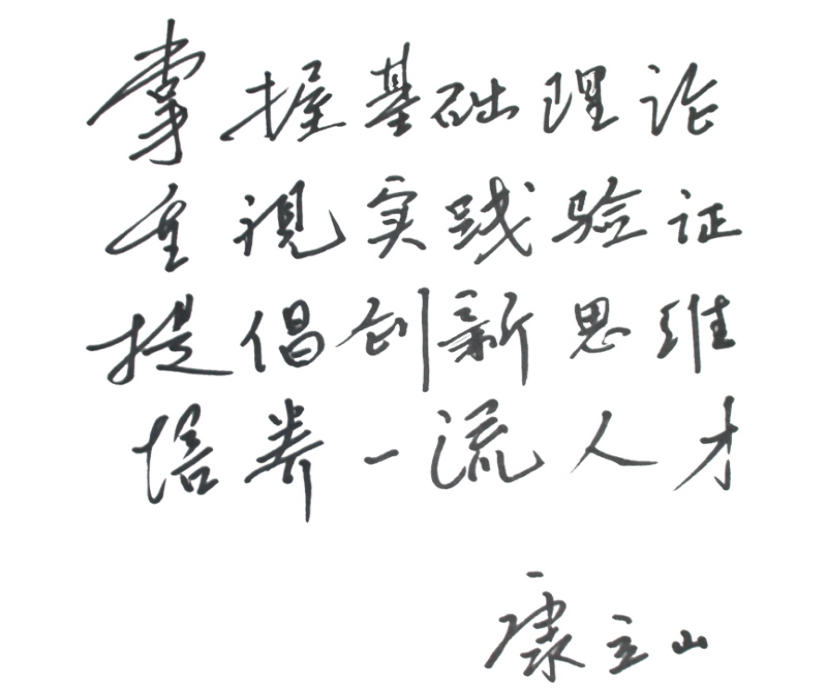 掌握基础理论
重视实践验证
提倡创新思维
培养一流人才
康立山